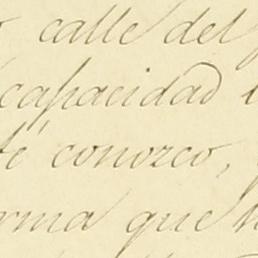 calle del
capacidad
té conozco,
rma que h